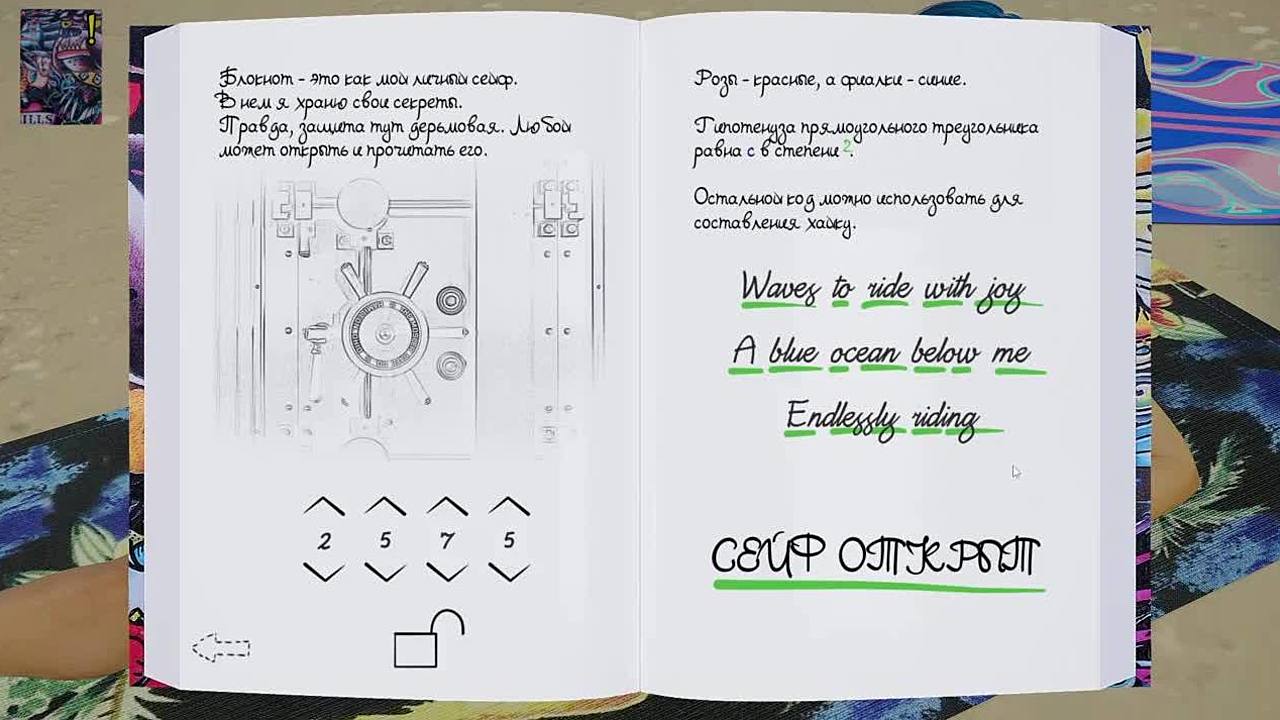 ILLS
Блокнот - это как мой личный сейф.
В нем я храню свои секреты.
Правда, защита тут дерьмовая. Любой
может открыть и прочитать его.
2 5 7 5
Розы - красные, а фиалки - синие.
Гипотенуза прямоугольного треугольника
равна с в степени 2.
Остальной код можно использовать для
составления хайку.
Waves to ride with joy
A blue ocean below me
Endlessly riding
СЕЙФ ОТКРЫТ